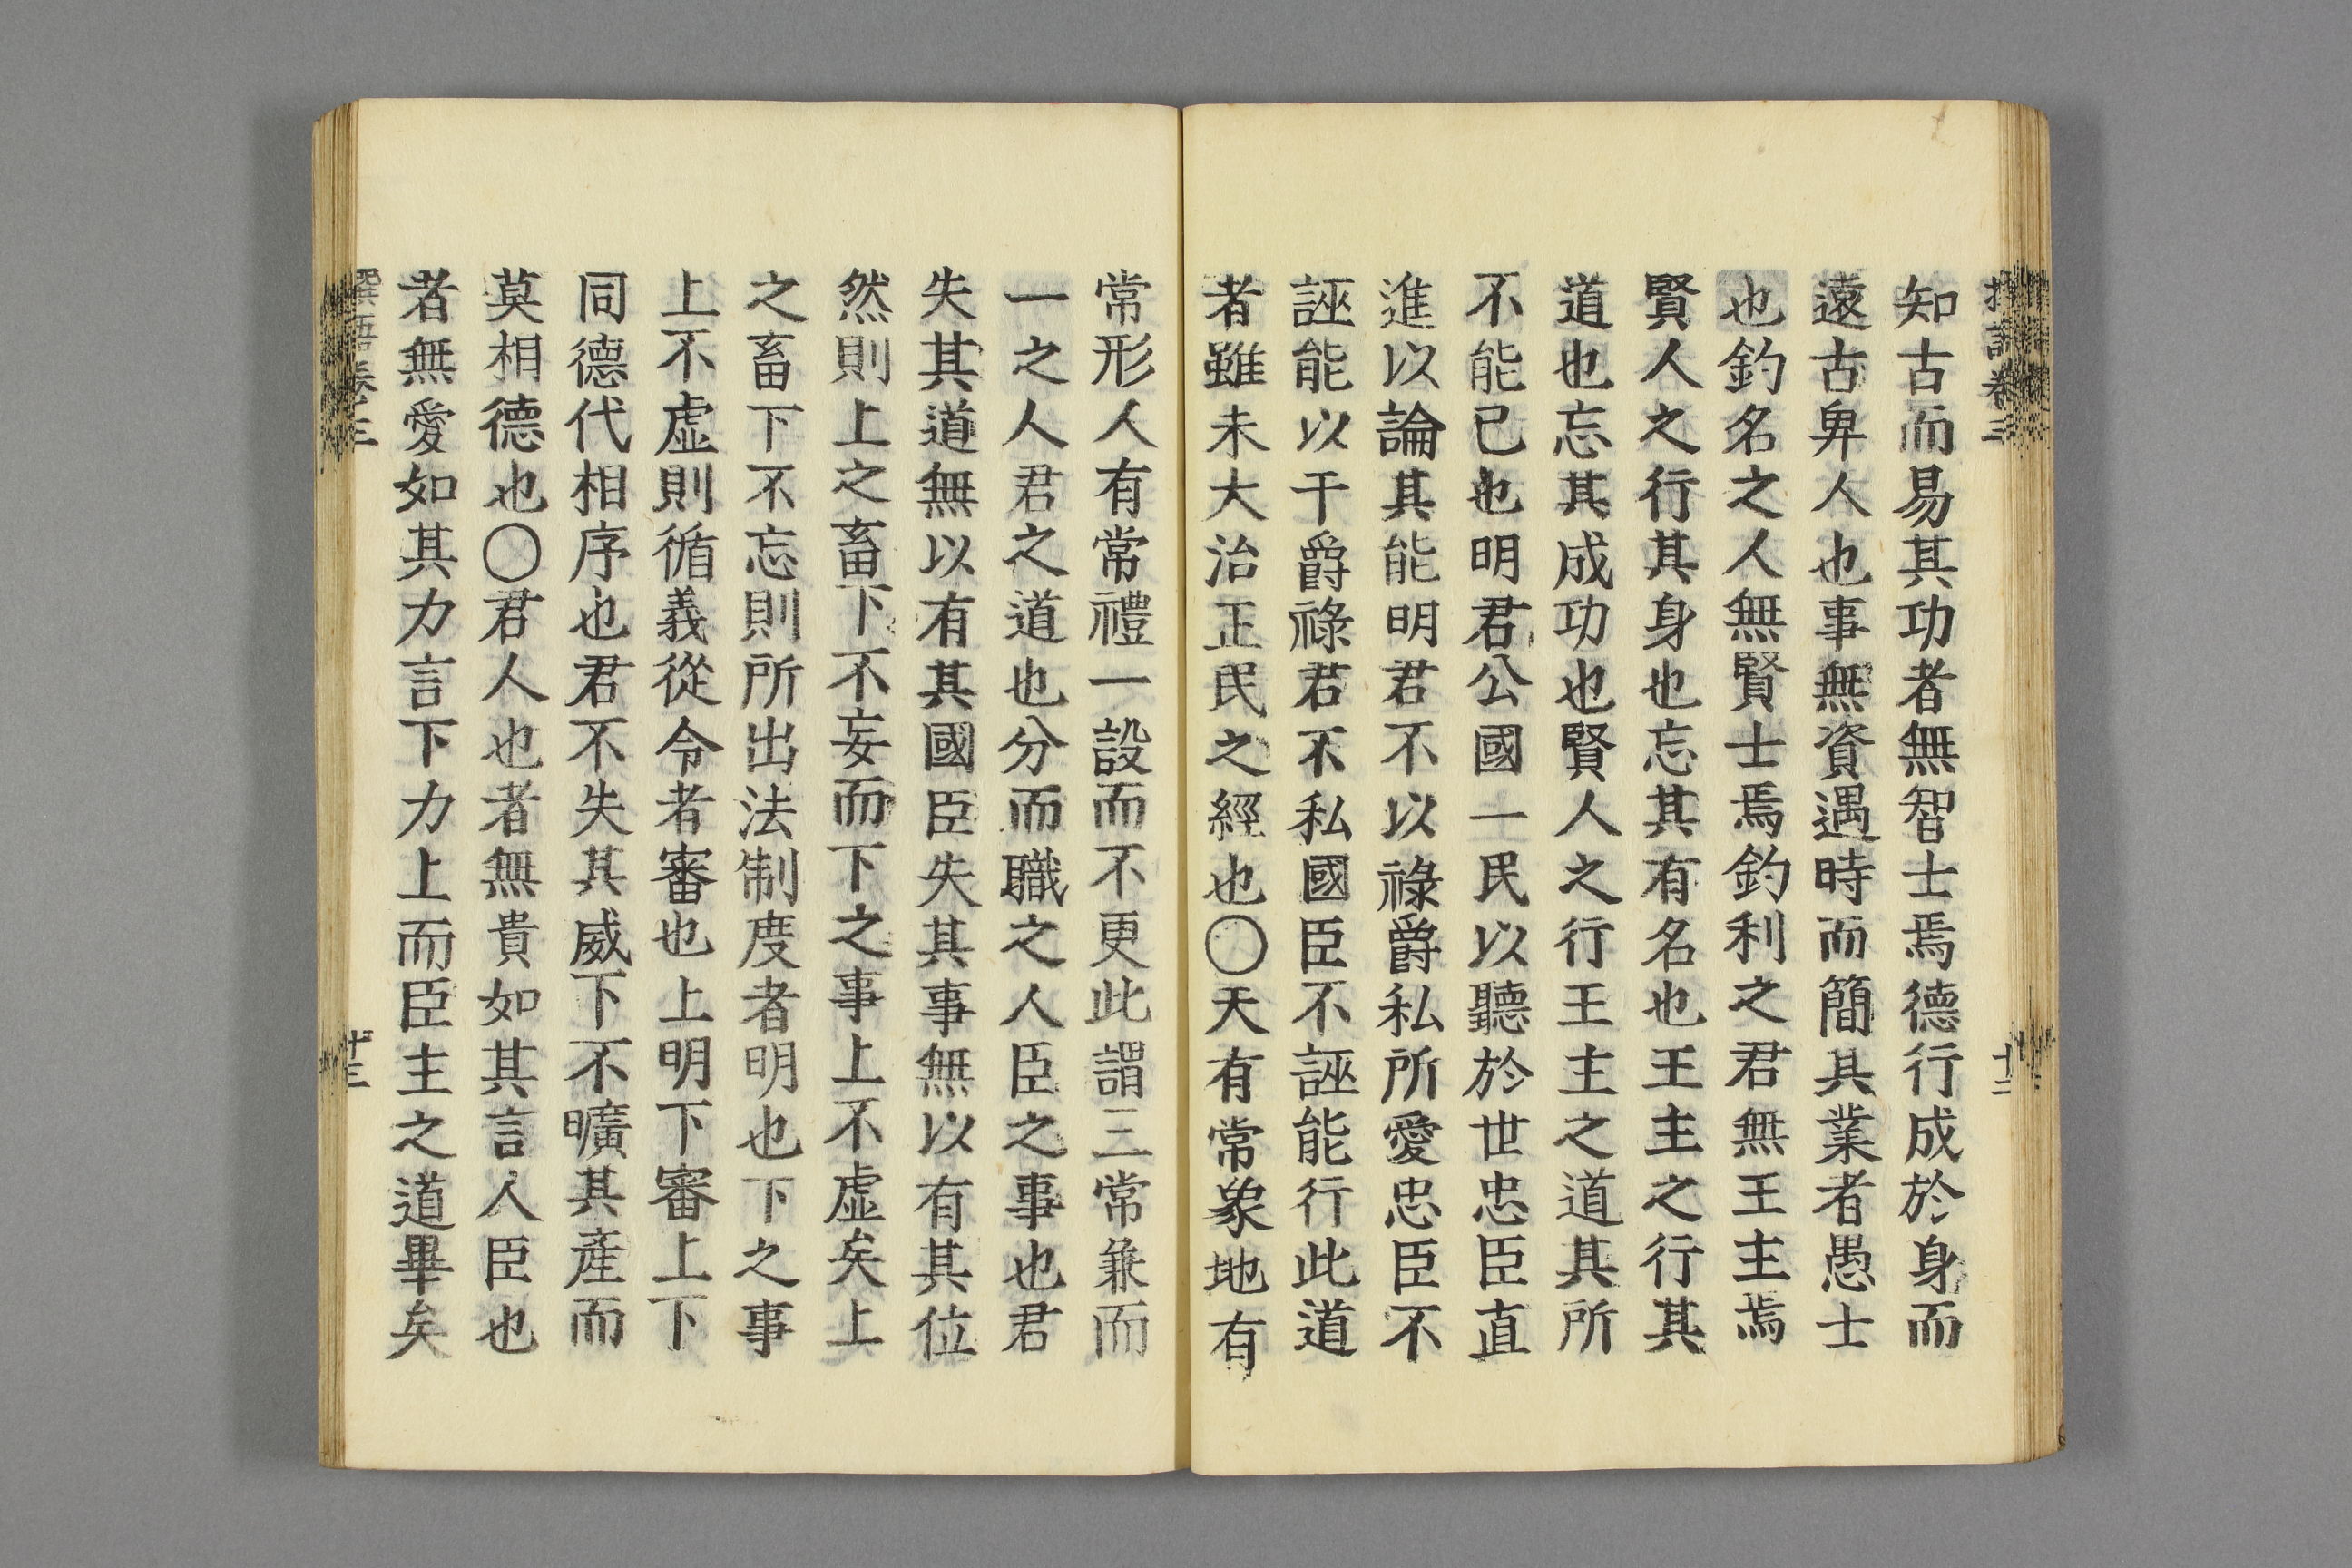 知古而易其功者無智士焉德行成於身而
遠古卑人也事無資遇時而簡其業者愚士
也釣名之人無賢士焉釣利之君無王主焉
賢人之行其身也忘其有名也王主之行其
道也忘其成功也賢人之行王主之道其所
不能已也明君公國一民以聽於世忠臣直
進以論其能明君不以祿爵私所愛忠臣不
誣能以干爵祿君不私國臣不誣能行此道
者雖未大治正民之經也〇天有常象地有
常形人有常禮一設而不更此謂三常兼而
一之人君之道也分而職之人臣之事也君
失其道無以有其國臣失其事無以有其位
然則上之畜下不妄而下之事上不虛矣上
之畜下不忘則所出法制度者明也下之事
上不虛則循義從令者審也上明下審上下
同德代相序也君不失其威下不曠其產而
莫相德也〇君人也者無貴如其言人臣也
者無愛如其力言下力上而臣主之道畢矣
卷三
十三